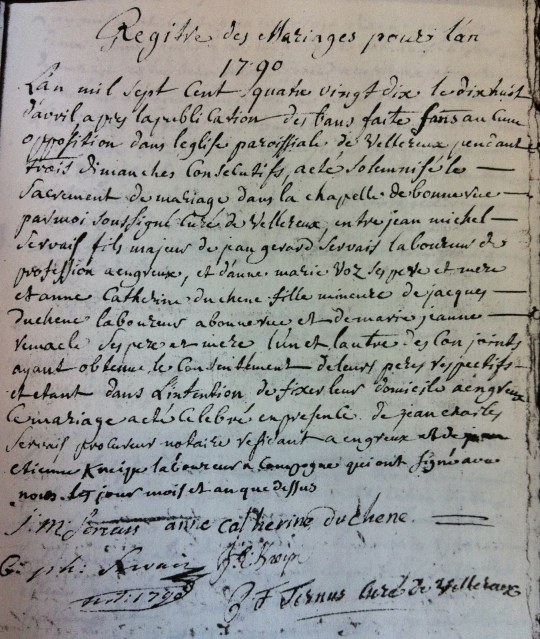 Registre des Mariages pour l'an
1790
L'an mil sept Cent quatre vingt dix le dix huit
d'avril apres la publication des bans faite sans aucune
opposition dans leglise paroissiale de Vellereux pendant
trois dimanches Consecutifs, a eté solemnisé le
Sacrement de mariage dans la chapelle de bonnerue
par moi soussigné Curé de Vellereux, entre jean michel
Servais fils majeur de jean gerard Servais laboureur de
profession a engreux, et d'anne marie Voz ses pere et mere
et anne Catherine duchene fille mineure de jacques
duchene laboureur a bonnerue et de marie jeanne
remacle ses pere et mere l'un et l'autre des Conjoints
ayant obtenue le Consentement de leurs peres respectifs
et etant dans l'intention de fixer leur domicile a engreux
Ce mariage a eté Celebré en presence de jean charles
Servais procureur notaire residant a engreux et de
etienne Kneipe laboureur a Compogne qui ont signé avec
nous les jour mois et an que dessus
J: M Servais anne Catherine duchene
1790
J F Ternus Curé de Vellereux